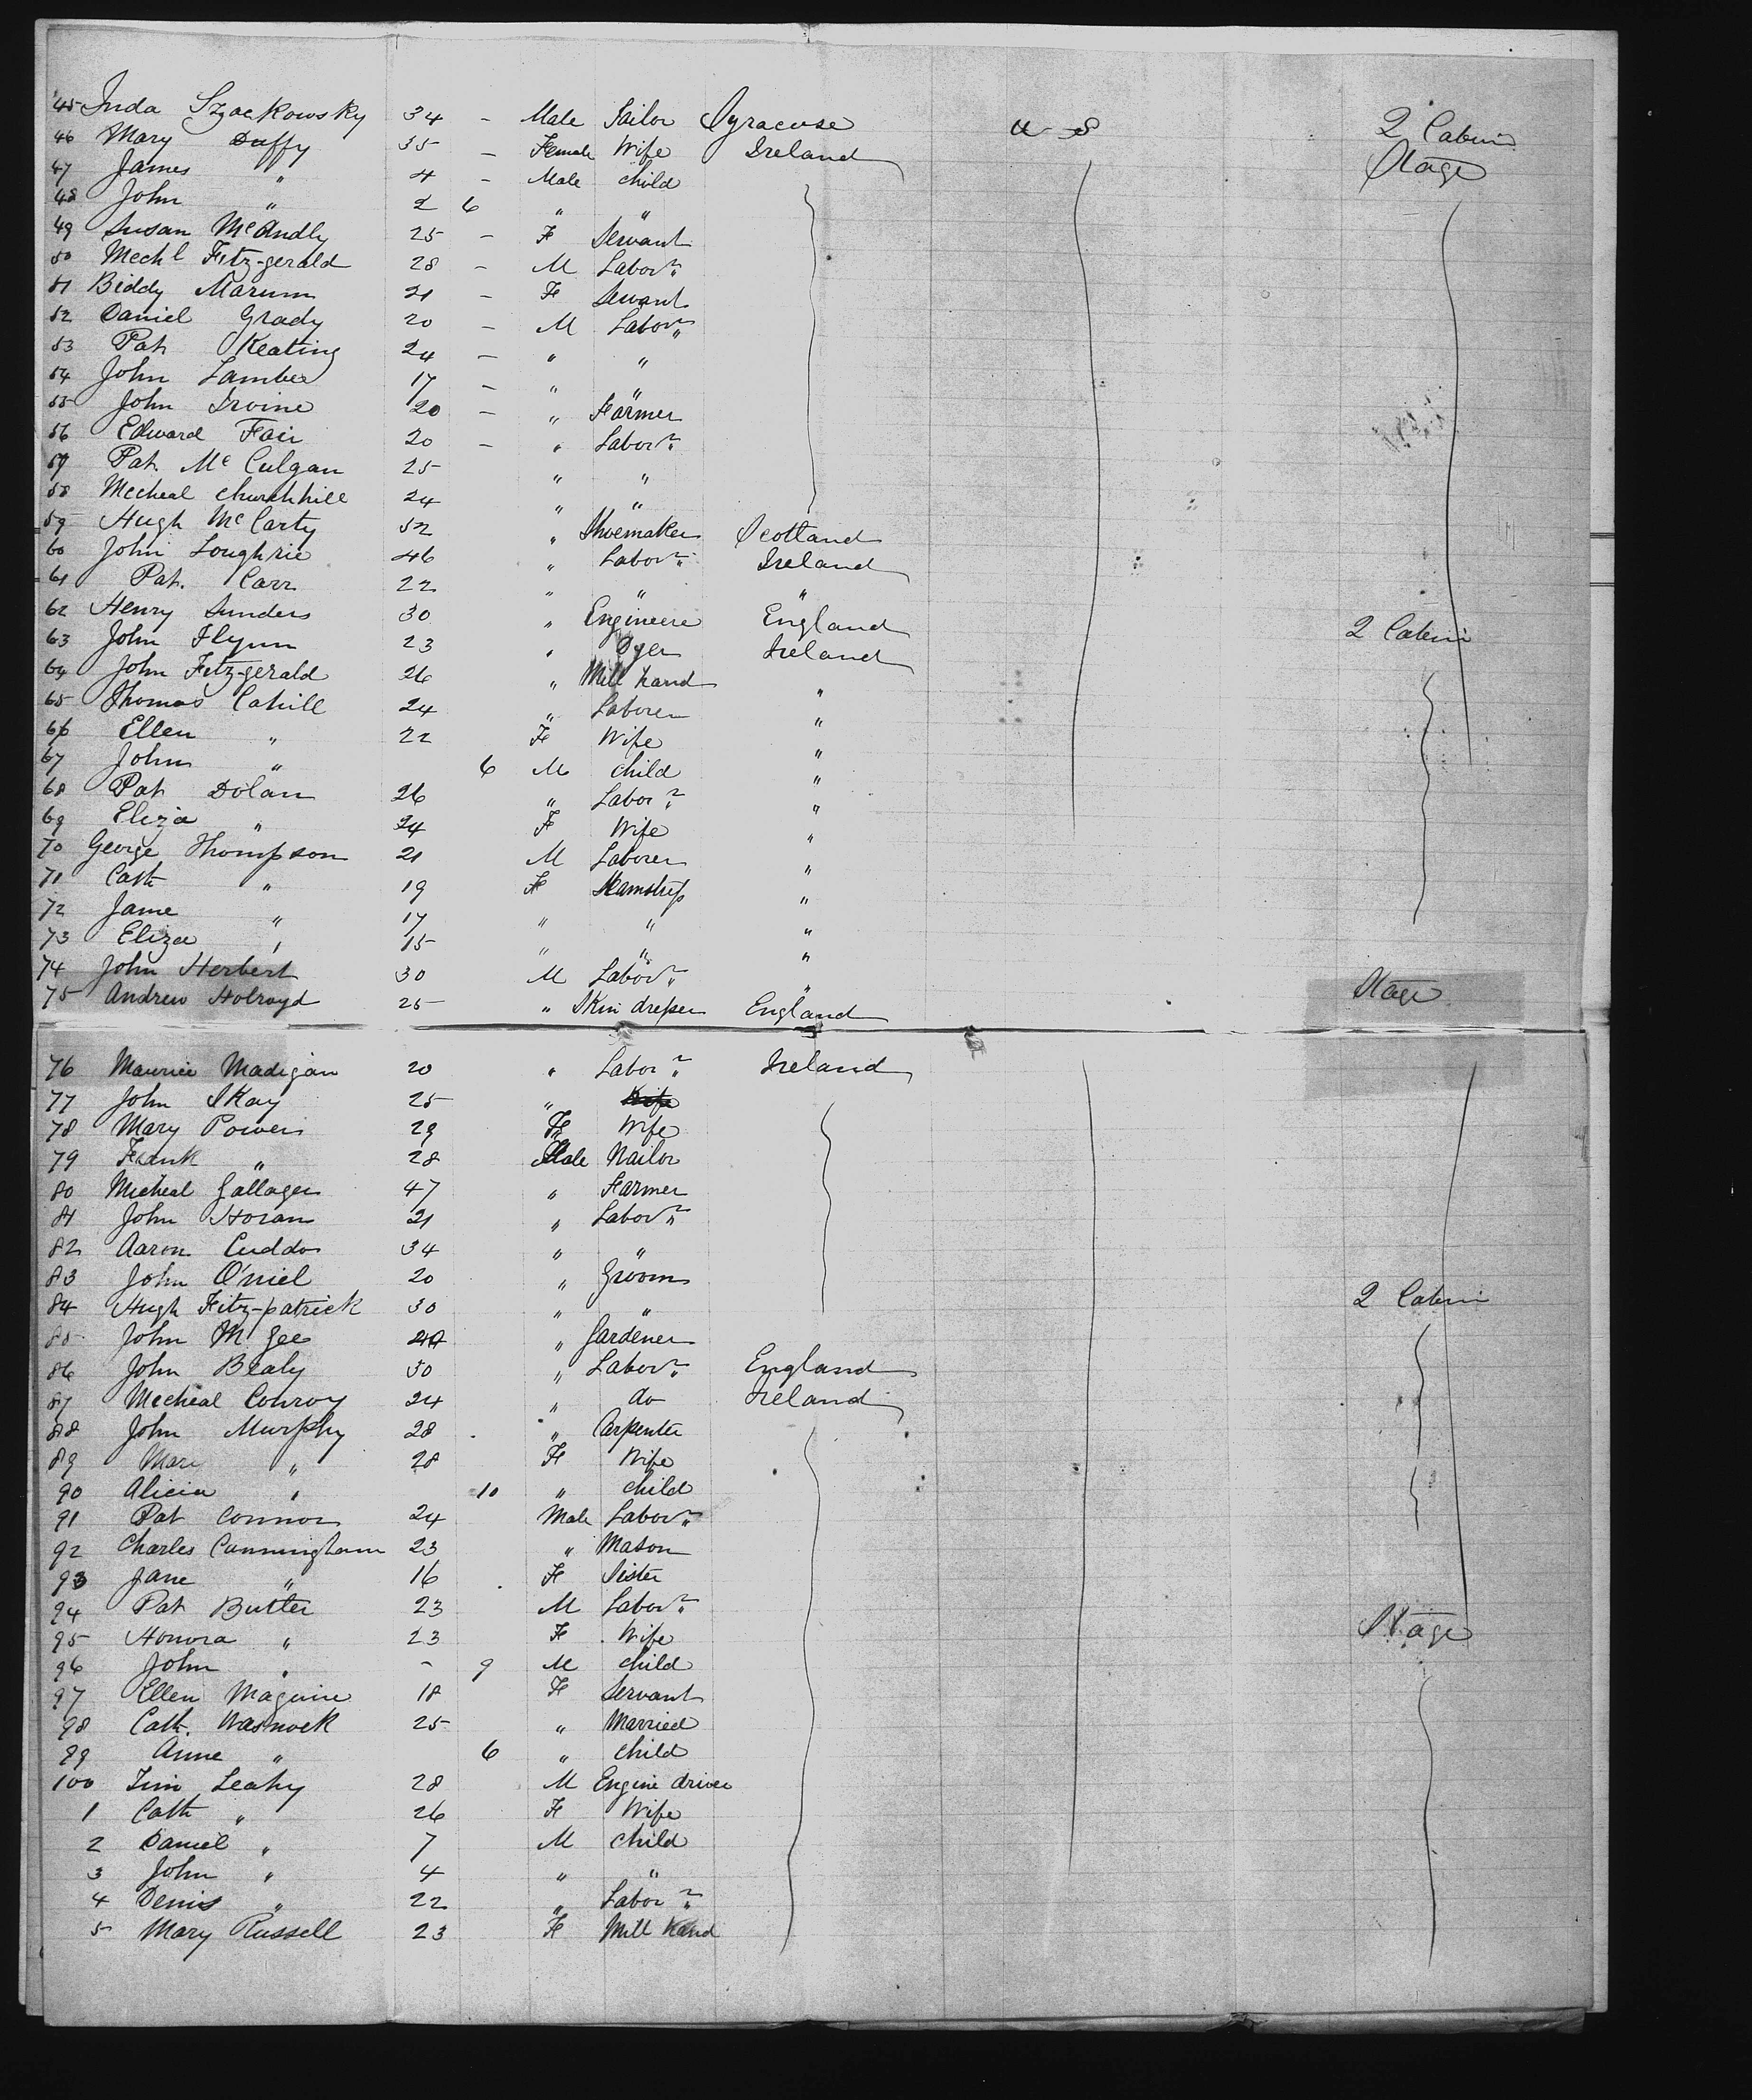 45 Juda Szackowsky 34 - Male Tailor Syracuse U S 2 Cabin
46 Mary Duffy 35 - Female Wife Ireland Stage
47 James " 4 - Male child
48 John " 2 6 " "
49 Susan McAndly 25 - F Servant
50 Mechl Fitz-gerald 28 - M Labor"r
51 Biddy Marum 21 - F Servant
52 Daniel Grady 20 - M Labor"r
53 Pat Keating 24 - " "
54 John Lambee 17 - " "
55 John Irvine 20 - " Farmer
56 Edward Fair 20 - " Labor"r
57 Pat Mc Culgan 25 " "
58 Mecheal Churchhill 24 " "
59 Hugh McCarty 52 " Shoemaker Scotland
60 John Loughrie 46 " Labor"r Ireland
61 Pat. Carr 22 " " "
62 Henry Sunders 30 " Engineere England 2 Cabin
63 John Flynn 23 " Dyer Ireland
64 John Fitz-gerald 26 " Mill hand "
65 Thomas Cahill 24 " Laborer "
66 Ellen " 22 F Wife "
67 John " 6 M child "
68 Pat Dolan 26 " Labor"r "
69 Eliza " 24 F Wife "
70 George Thompson 21 M Laborer "
71 Cath " 19 F Seamstress "
72 Jame " 17 " " "
73 Eliza " 15 " " "
74 John Herbert 30 M Labor"r " Stage
75 Andrew Holroyd 25 " Skin dresser England
76 Maurice Madigan 20 " Labor"r Ireland
77 John Kay 25 "
78 Mary Powers 29 F Wife
79 Frank " 28 Male Nailor
80 Micheal Gallager 47 " Farmer
81 John Horan 21 " Labor"r
82 Aaron Cuddos 34 " "
83 John O'niel 20 " Groom
84 Hugh Fitz-patrick 30 " " 2 Cabin
85 John McGee " Gardener
86 John Bealy 30 " Labor"r England
87 Mecheal Conroy 24 " do Ireland
88 John Murphy 28 " Carpenter
89 Mary " 28 F Wife
90 Alicia " 10 " child
91 Pat Connor 24 Male Labor"r
92 Charles Cunningham 23 " Mason
93 Jane " 16 F Sister
94 Pat Butler 23 M Labor"r Stage
95 Honora " 23 F Wife
96 John " - 9 M child
97 Ellen Maguire 18 F Servant
98 Cath. Wasnock 25 " Married
99 Anne " 6 " child
100 Tim Leahy 28 M Engine driver
1 Cath " 26 F Wife
2 Daniel " 7 M child
3 John " 4 " "
4 Denis " 22 " Labor"r
5 Mary Russell 23 F Mill hand